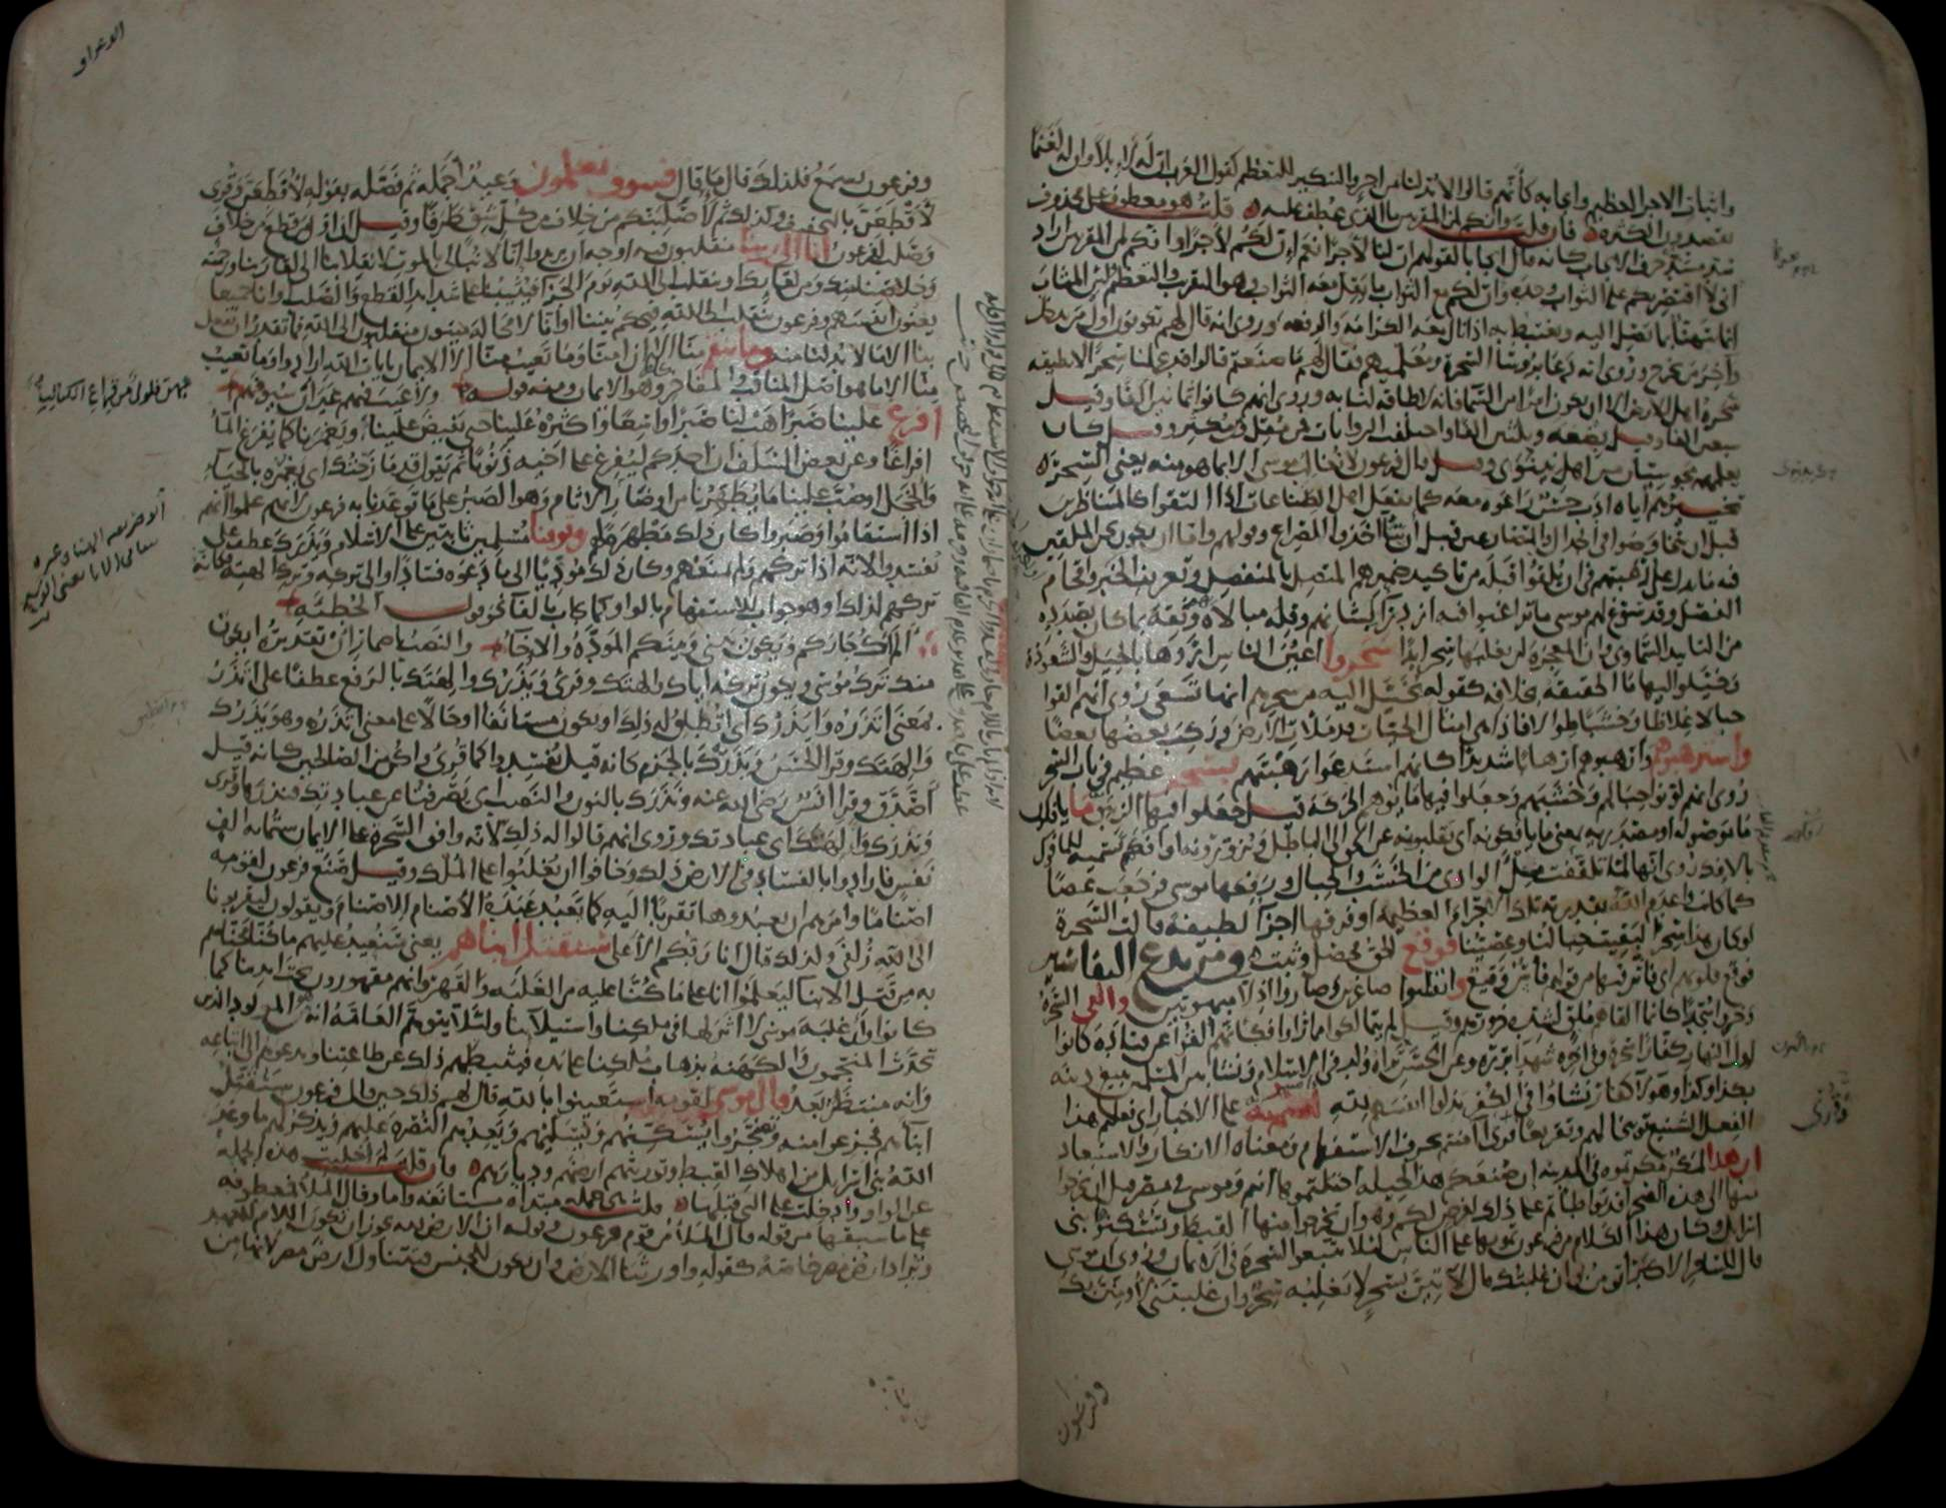 واثبات الاجر العظيم وايجابه كأنهم قالوا لابد لنا من اجر والتنكير للتعظيم كقول العرب ان له لابلا وان له لغنما
يقصدون الكثرة فان قلت وانكم لمن المقربين ما الذي عطف عليه قلت هو معطوف على محذوف
سد مسده حرف الايجاب كانه قال ايجابا لقولهم ان لنا لاجرا نعم ان لكم لاجرا وانكم لمن المقربين اراد
اني لا اقتصر بكم على الثواب وحده وان لكم مع الثواب ما يقل معه الثواب وهو التقريب والتعظيم لان المثاب
انما يتهنا بما يصل اليه ويغتبط به اذا نال معه الكرامة والرفعة وروي انه قال لهم تكونون اول من يدخل
واخر من يخرج وروي انه دعا برؤساء السحرة ومعلميهم فقال لهم ما صنعتم قالوا قد عملنا سحرا لا يطيقه
سحرة اهل الارض الا ان يكون امرا من السماء فانه لا طاقة لنا به وروي انهم كانوا ثمانين الفا وقيل
سبعين الفا وقيل بضعة وثلثين الفا واختلفت الروايات فمن مقل ومن مكثر وقيل كان
يعلمهم مجوسيان من اهل نينوى وقيل قال فرعون لا نغالب موسى الا بما هو منه يعني السحر
تخييرهم اياه ادب حسن راعوه معه كما يفعل اهل الصناعات اذا التقوا كالمتناظرين
قبل ان يتخاوضوا في الجدال والمتصارعين قبل ان يتاخذوا للصراع وقولهم واما ان نكون نحن الملقين
فيه ما يدل على رغبتهم في ان يلقوا قبله من تاكيد ضميرهم المتصل بالمنفصل وتعريف الخبر واقحام
الفصل وقد سوغ لهم موسى ما تراغبوا فيه ازدراء لشانهم وقلة مبالاة وثقة بما كان بصدده
من التاييد السماوي وان المعجزة لن يغلبها سحر ابدا سحروا اعين الناس اروها بالحيل والشعوذة
وخيلوا اليها ما الحقيقة بخلافه كقوله يخيل اليه من سحرهم انها تسعى روي انهم القوا
حبالا غلاظا وخشبا طوالا فاذا هي امثال الحيات قد ملات الارض وركب بعضها بعضا
واسترهبوهم وارهبوهم ارهابا شديدا كانهم استدعوا رهبتهم بسحر عظيم في باب السحر
روي انهم لونوا حبالهم وخشبهم وجعلوا فيها ما يوهم الحركة قيل جعلوا فيها الزيبق ما يافكون
ما موصولة او مصدرية بمعنى ما يافكونه اي يقلبونه عن الحق الى الباطل ويزورونه او افكهم تسمية للمافوك
بالافك روي انها لما تلقفت ملء الوادي من الخشب والحبال ورفعها موسى فرجعت عصا
كما كانت واعدم الله بقدرته تلك الاجرام العظيمة او فرقها اجزاء لطيفة قالت السحرة
لو كان هذا سحرا لبقيت حبالنا وعصينا فوقع الحق فحصل وثبت ومن بدع التفاسير
فوقع قلوبهم اي فاثر فيها من قولهم فاس وقيع وانقلبوا صاغرين وصاروا اذلاء مبهوتين والقي السحرة
وخروا سجدا كانما القاهم ملق لشدة خرورهم وقيل لم يتمالكوا مما راوا فكانهم القوا عن قتادة كانوا
اول النهار كفارا سحرة وفي اخره شهداء بررة وعن الحسن تراه ولد في الاسلام ونشا بين المسلمين يبيع دينه
بكذا وكذا وهؤلاء كفار نشاوا في الكفر بذلوا انفسهم لله امنتم به على الاخبار اي فعلتم هذا
الفعل الشنيع توبيخا لهم وتقريعا قرئ اامنتم بحرف الاستفهام ومعناه الانكار والاستبعاد
ان هذا لمكر مكرتموه في المدينة ان صنعكم هذا لحيلة احتلتموها انتم وموسى في مصر قبل ان تخرجوا
منها الى هذه الصحراء قد تواطاتم على ذلك لغرض لكم وهو ان تخرجوا منها القبط وتسكنوا بني
اسرائيل وكان هذا الكلام من فرعون تمويها على الناس لئلا يتبعوا السحرة في الايمان وروي ان موسى
قال للساحر الاكبر اتؤمن بي ان غلبتك قال لاتين بسحر لا يغلبه سحر وان غلبتني لاومنن بك
وفرعون
وفرعون يسمع فلذلك قال ما قال فسوف تعلمون وعيد اجمله ثم فصله بقوله لاقطعن وقرئ
لاقطعن بالتخفيف وكذلك ثم لاصلبنكم من خلاف من كل شق طرفا وقيل ان اول من قطع من خلاف
وصلب لفرعون انا الى ربنا منقلبون فيه اوجه ان يريدوا انا لا نبالي بالموت لانقلابنا الى لقاء ربنا ورحمته
وخلاصنا منك ومن لقائك او ننقلب الى الله يوم الجزاء فيثيبنا على شدائد القطع والصلب او انا جميعا
يعنون انفسهم وفرعون ننقلب الى الله فيحكم بيننا او انا لا محالة ميتون منقلبون الى الله فما تقدر ان تفعل
بنا الا ما لابد لنا منه وما تنقم منا الا ان امنا وما تعيب منا الا الايمان بايات الله ارادوا وما تعيب
منا الا ما هو اصل المناقب والمفاخر كلها وهو الايمان ومنه قوله ولا عيب فيهم غير ان سيوفهم
افرغ علينا صبرا هب لنا صبرا واسعا واكثره علينا حتى يفيض علينا ويغمرنا كما يفرغ الماء
افراغا وعن بعض السلف ان احدكم ليفرغ على اخيه ذنوبا ثم يقول قد مازحتك اي يغمره بالحياء
والخجل او صب علينا ما يطهرنا من اوضار الاثام وهو الصبر على ما توعدنا به فرعون لانهم علموا انهم
اذا استقاموا وصبروا كان ذلك مطهرة لهم وتوفنا مسلمين ثابتين على الاسلام ويذرك عطف على
ليفسدوا لانه اذا تركهم ولم يمنعهم وكان ذلك مؤديا الى ما دعوه فسادا والى تركه وترك الهته فكانه
تركهم لذلك او هو جواب للاستفهام بالواو كما يجاب بالفاء نحو قول الحطيئة
الم اك جاركم ويكون بيني وبينكم المودة والاخاء والنصب باضمار ان تقديره ايكون
منك ترك موسى ويكون تركه اياك والهتك وقرئ ويذرك والهتك بالرفع عطفا على اتذر
بمعنى اتذره وايذرك اي اتطلق له ذلك او يكون مستانفا او حالا على معنى اتذره وهو يذرك
والهتك وقرا الحسن ويذرك بالجزم كانه قيل يفسدوا كما قرئ واكن من الصالحين كانه قيل
اصدق وقرا انس رضي الله عنه ونذرك بالنون والنصب اي يصرفنا عن عبادتك فنذرها وقرئ
ويذرك والاهتك اي عبادتك وروي انهم قالوا له ذلك لانه وافق السحرة على الايمان ستمائة الف
نفس فارادوا بالفساد في الارض ذلك وخافوا ان يغلبوا على الملك وقيل صنع فرعون لقومه
اصناما وامرهم ان يعبدوها تقربا اليه كما تعبد عبدة الاصنام الاصنام ويقولون ليقربونا
الى الله زلفى ولذلك قال انا ربكم الاعلى سنقتل ابناءهم يعني سنعيد عليهم ما كنا محناهم
به من قتل الابناء ليعلموا انا على ما كنا عليه من الغلبة والقهر وانهم مقهورون تحت ايدينا كما
كانوا وان غلبة موسى لا اثر لها في ملكنا واستيلائنا ولئلا يتوهم العامة انه هو المولود الذي
تحدث المنجمون والكهنة بذهاب ملكنا على يده فيثبطهم ذلك عن طاعتنا ويدعوهم الى اتباعه
وانه منتظر بعد قال موسى لقومه استعينوا بالله قال لهم ذلك حين قال فرعون سنقتل
ابناءهم فجزعوا منه وتضجروا يسكنهم ويسليهم ويعدهم النصرة عليهم ويذكر لهم ما وعد
الله بني اسرائيل من اهلاك القبط وتوريثهم ارضهم وديارهم فان قلت لم اخليت هذه الجملة
عن الواو وادخلت على التي قبلها قلت هي جملة مبتداة مستانفة واما وقال الملا فمعطوفة
على ما سبقها من قوله قال الملا من قوم فرعون وقوله ان الارض لله يجوز ان تكون اللام للعهد
ويراد ارض مصر خاصة كقوله واورثنا الارض وان يكون للجنس فيتناول ارض مصر لانها من